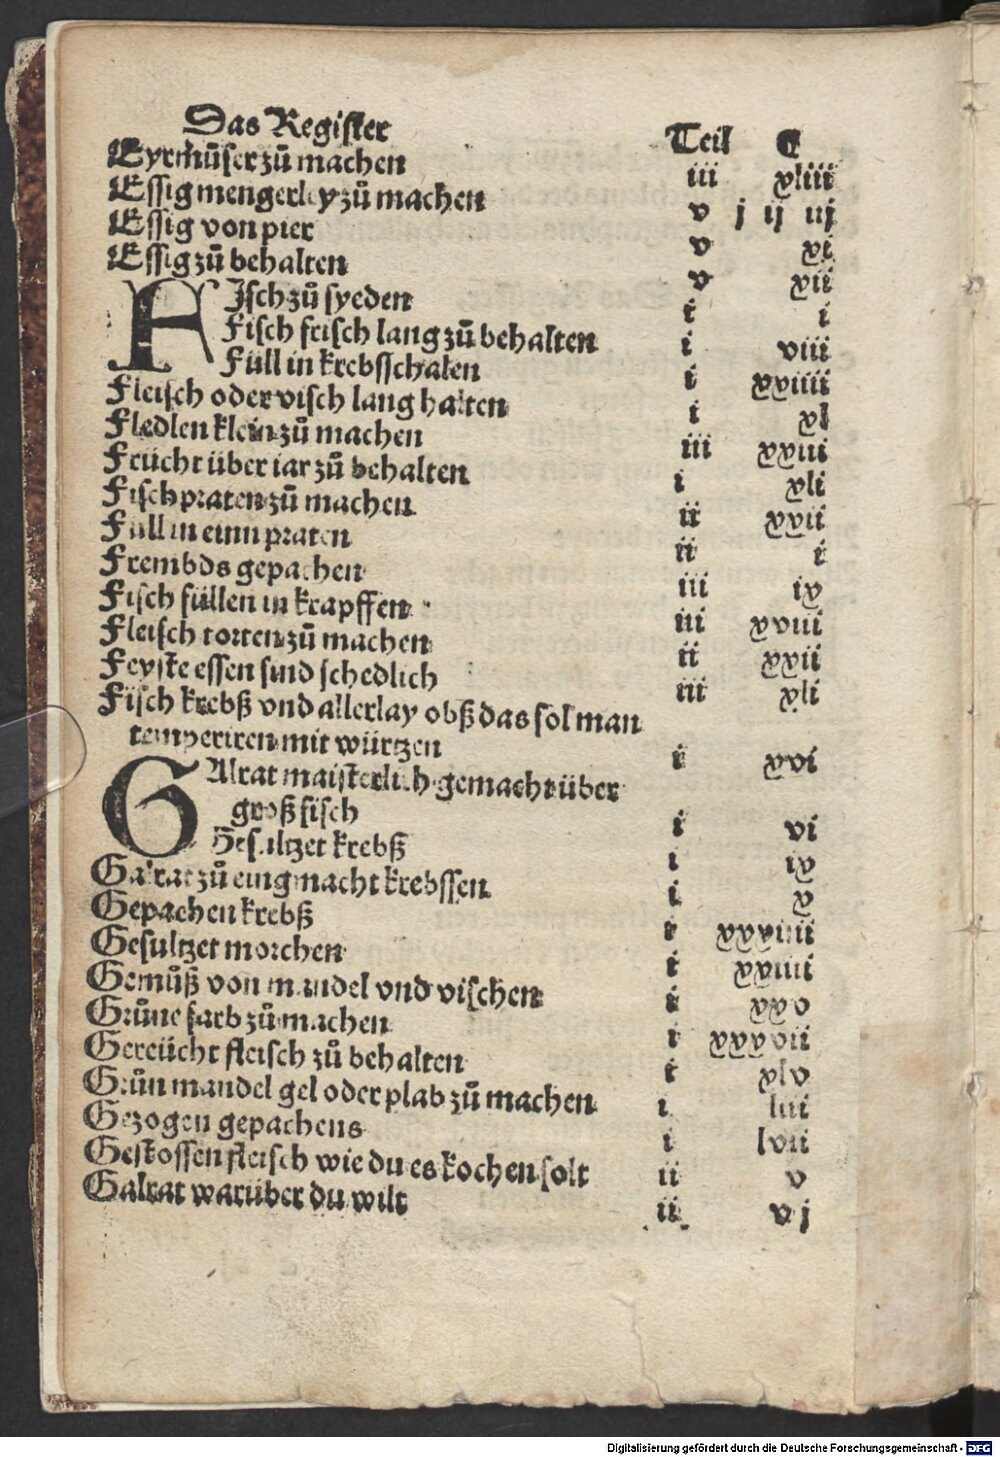 Das Register Teil ¶
Eyrmůser zů machen iii xliii
Essig mengerley zů machen v j ij iij
Essig von pier v xi
Essig zů behalten v xii
FIsch zů syeden i i
Fisch frisch lang zů behalten i viii
Füll in krebsschalen i xxiiii
Fleisch oder visch lang halten i xl
Fledlen klein zů machen iii xxiii
Frücht über iar zů behalten i xli
Fisch praten zů machen ii xxii
Füll in einn praten ii i
Frembds gepachen iii ix
Fisch füllen in krapffen iii xviii
Fleisch torten zů machen ii xxii
Feyste essen sind schedlich iii xli
Fisch krebß vnd allerlay obß das sol man
temperiren mit würtzen i xvi
GAlrat maisterlich gemacht über
groß fisch i vi
Gesultzet krebß i ix
Galrat zů eingmacht krebssen i x
Gepachen krebß i xxxiiii
Gesultzet morchen i xxiiii
Gemůß von mandel vnd vischen i xxv
Grüne farb zů machen i xxxvii
Gereücht fleisch zů behalten i xlv
Grün mandel gel oder plab zů machen i liii
Gezogen gepachens i lvii
Gestossen fleisch wie du es kochen solt ii v
Galrat warüber du wilt ii vj
Digitalisierung gefördert durch die Deutsche Forschungsgemeinschaft - DFG